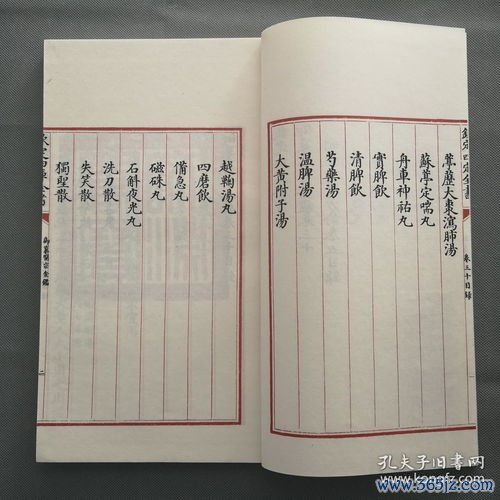 欽定四庫全書
葶藶大棗瀉肺湯
蘇葶定喘丸
舟車神祐丸
實脾飲
清脾飲
芍藥湯
溫脾湯
大黃附子湯
卷三十目錄
越鞠湯丸
四磨飲
備急丸
磁硃丸
石斛夜光丸
洗刀散
失笑散
獨聖散
欽定四庫全書
御纂醫宗金鑑
二
孔夫子旧书网
www.kongfz.com
www.365jz.com